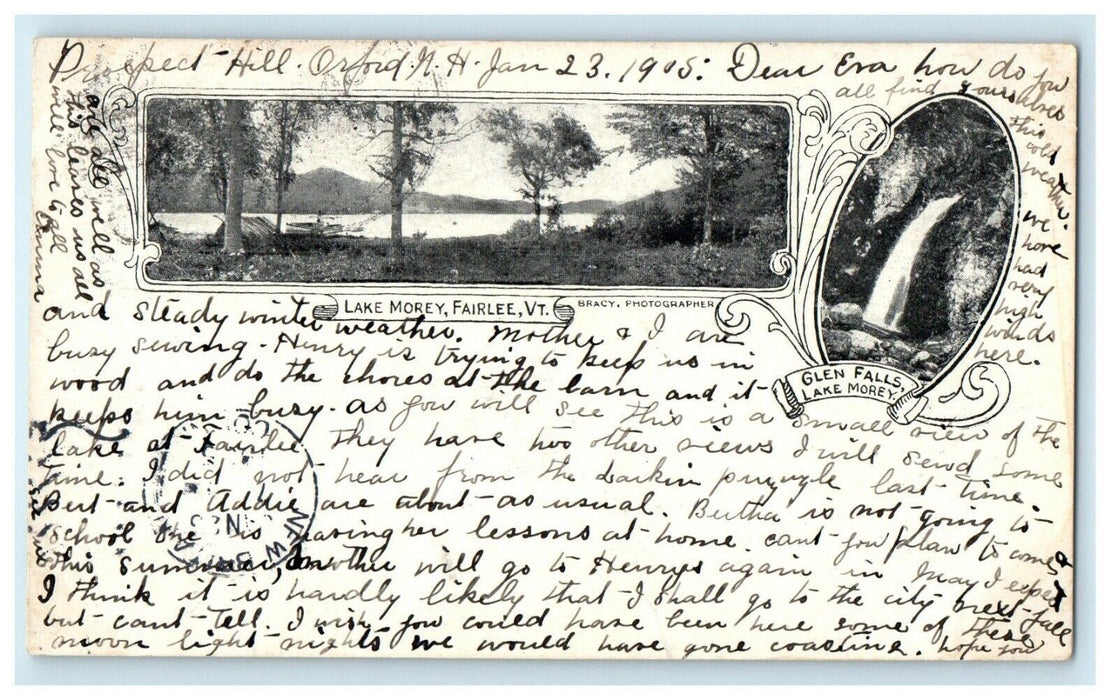 Prospect Hill. Orford. N. H. Jan 23. 1905: Dear Eva how do you
all find yourselves
this
cold
weather
we
have
had
very
high
winds
here.
and steady winter weather. Mother & I are
busy sewing. Henry is trying to keep us in
wood and do the chores at the barn and it
keeps him busy. as you will see this is a small view of the
lake at Fairlee they have two other views I will send some
time. I did not hear from the Larkin last time
Burt and Addie are about as usual. Bertha is not going to
school she is having her lessons at home. cant you plan to come
this summer, mother will go to Henrys again in May I expect
I think it is hardly likely that I shall go to the city next fall
but cant tell. I wish you could have been here some of these
moon light nights we would have gone coasting. hope you
are all well as
this leaves us all
will love to all
Emma
LAKE MOREY, FAIRLEE, VT.
BRACY, PHOTOGRAPHER
GLEN FALLS,
LAKE MOREY.
see us
CONN
NEW BRITAIN